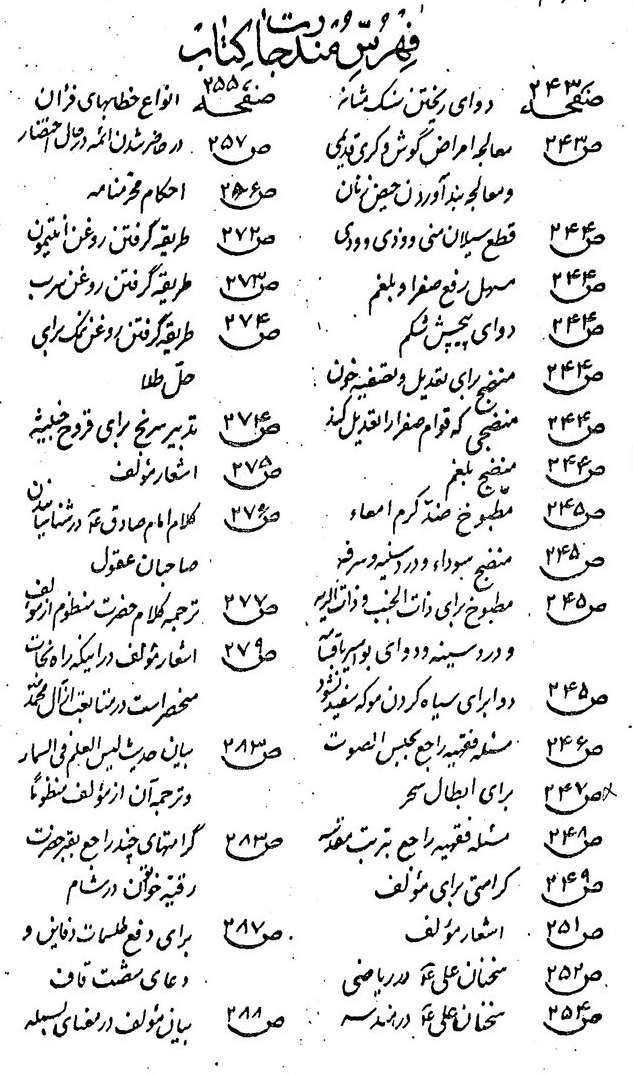 فهرس مندرجات کتاب
صفحه ۲۴۳ دوای ریختن سنگ مثانه
ص ۲۴۳ معالجه امراض گوش و کری قدیمی
و معالجه بند آوردن حیض زنان
ص ۲۴۴ قطع سیلان منی و وذی و ودی
ص ۲۴۴ مسهل رفع صفرا و بلغم
ص ۲۴۴ دوای پیچش شکم
ص ۲۴۴ منضج برای تعدیل و تصفیه خون
ص ۲۴۴ منضجی که قوام صفرا را تعدیل کند
ص ۲۴۴ منضج بلغم
ص ۲۴۵ مطبوخ ضدّ کرم امعاء
ص ۲۴۵ منضج سوداء و درد سینه و سرفه
ص ۲۴۵ مطبوخ برای ذات الجنب و ذات الریه
و درد سینه و دوای بواسیر
ص ۲۴۵ دوا برای سیاه کردن مو که سفید نشود
ص ۲۴۶ مسئله فقهیه راجع بحبس الصوت
ص ۲۴۷ برای ابطال سحر
ص ۲۴۸ مسئله فقهیه راجع بتربت مقدسه
ص ۲۴۹ کرامتی برای مؤلف
ص ۲۵۱ اشعار مؤلف
ص ۲۵۲ سخنان علی ع در ریاضی
ص ۲۵۴ سخنان علی ع در هندسه
صفحه ۲۵۵ انواع خطابهای قرآن
ص ۲۵۷ در حاضر شدن ائمه در حال احتضار
ص احکام محرمنامه
ص ۲۷۲ طریقه گرفتن روغن انتیمون
ص ۲۷۳ طریقه گرفتن روغن سرب
ص ۲۷۴ طریقه گرفتن روغن نمک برای
حلّ طلا
ص ۲۷۴ تدبیر سرنج برای قروح خبیثه
ص ۲۷۵ اشعار مؤلف
ص ۲۷۵ کلام امام صادق ع در شناسانیدن
صاحبان عقول
ص ۲۷۷ ترجمه کلام حضرت منظوم از مؤلف
ص ۲۷۹ اشعار مؤلف در اینکه راه نجات
منحصر است در متابعت از آل محمد
ص ۲۸۳ بیان حدیث لیس العلم فی السماء
و ترجمه آن از مؤلف منظوماً
ص ۲۸۳ کرامتهای چند راجع بقبر حضرت
رقیه خواتون در شام
ص ۲۸۷ برای دفع طلسمات دفاین و
دعای هشت قاف
ص ۲۸۸ بیان مؤلف در معنای بسمله